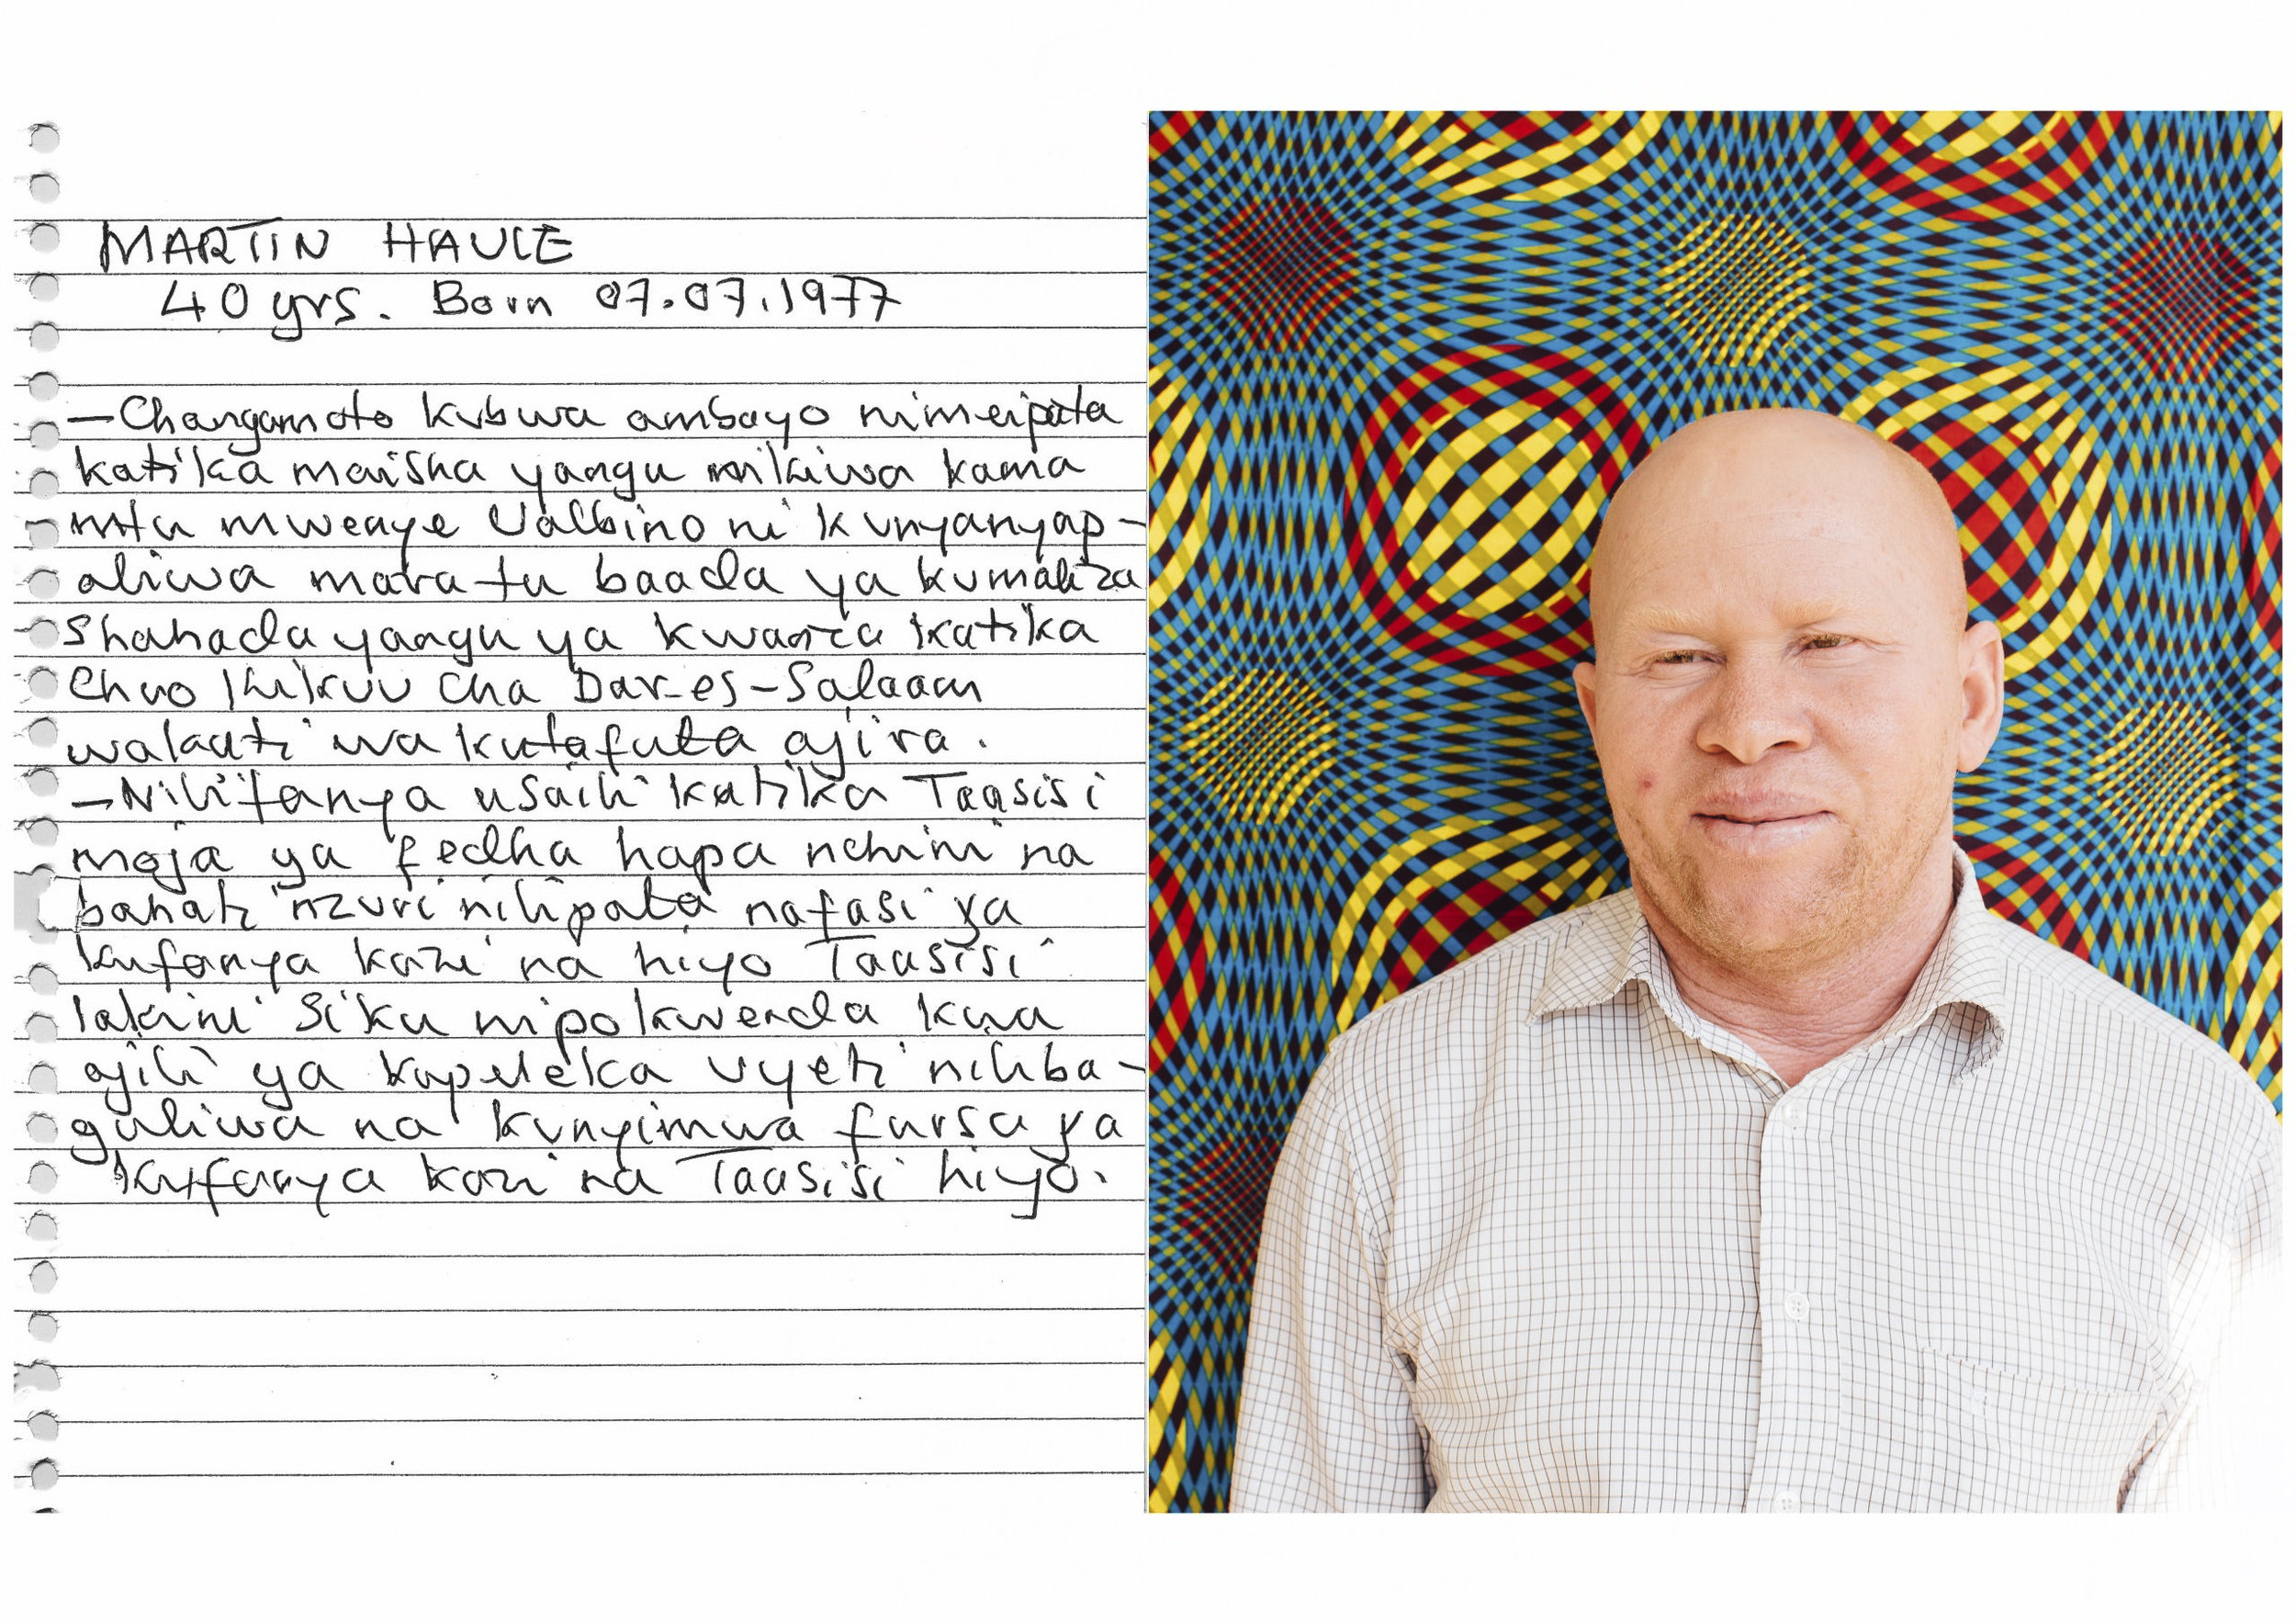 MARTIN HAULE
40 yrs. Born 07.07.1977
- Changamoto kubwa ambayo nimeipata
katika maisha yangu nikiwa kama
mtu mwenye Ualbino ni kunyanyap-
aliwa mara tu baada ya kumaliza
Shahada yangu ya kwanza katika
Chuo Kikuu cha Dar-es-Salaam
wakati wa kutafuta ajira.
- Nilifanya usaili katika Taasisi
moja ya fedha hapa nchini na
bahati nzuri nilipata nafasi ya
kufanya kazi na hiyo Taasisi
lakini siku nipokwenda kwa
ajili ya kupeleka vyeti niliba-
guliwa na kunyimwa fursa ya
kufanya kazi na Taasisi hiyo.